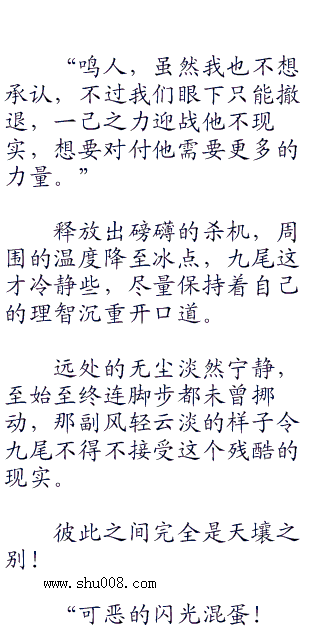 “鸣人，虽然我也不想
承认，不过我们眼下只能撤
退，一己之力迎战他不现
实，想要对付他需要更多的
力量。”
释放出磅礴的杀机，周
围的温度降至冰点，九尾这
才冷静些，尽量保持着自己
的理智沉重开口道。
远处的无尘淡然宁静，
至始至终连脚步都未曾挪
动，那副风轻云淡的样子令
九尾不得不接受这个残酷的
现实。
彼此之间完全是天壤之
别！
www.shu008.com
“可恶的闪光混蛋！